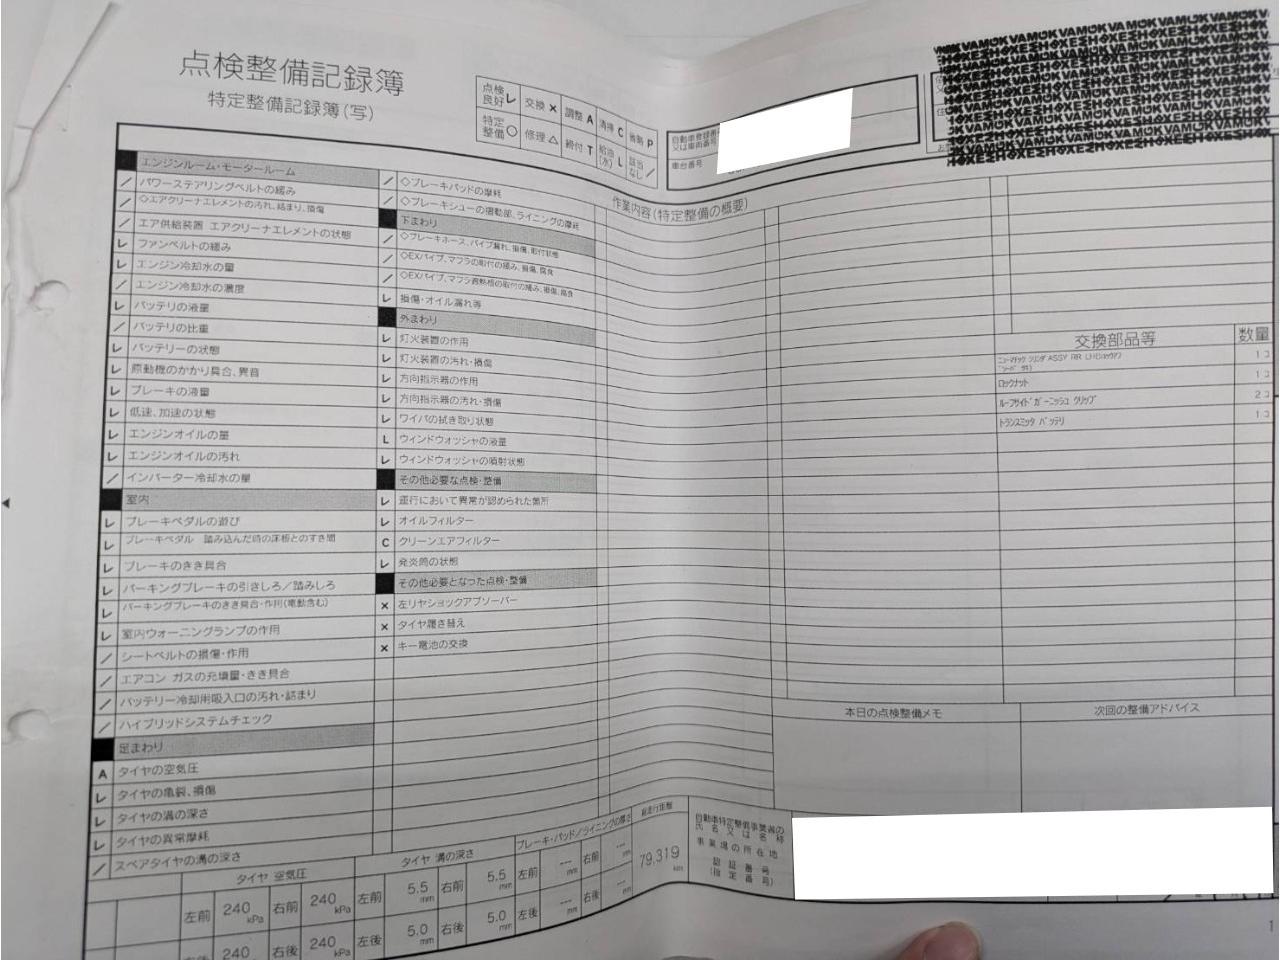 点検整備記録簿
特定整備記録簿(写)
点検良好 レ 交換 × 調整 A 清掃 C 省略 P
特定整備 ○ 修理 △ 締付 T 給油(水) L 該当なし /
自動車登録番号
又は車両番号
車台番号
エンジンルーム・モータールーム
/ パワーステアリングベルトの緩み
/ ◇エアクリーナエレメントの汚れ、詰まり、損傷
/ エア供給装置 エアクリーナエレメントの状態
レ ファンベルトの緩み
レ エンジン冷却水の量
/ エンジン冷却水の濃度
レ バッテリの液量
/ バッテリの比重
レ バッテリーの状態
レ 原動機のかかり具合、異音
レ ブレーキの液量
レ 低速、加速の状態
レ エンジンオイルの量
レ エンジンオイルの汚れ
/ インバーター冷却水の量
室内
レ ブレーキペダルの遊び
レ ブレーキペダル 踏み込んだ時の床板とのすき間
レ ブレーキのきき具合
レ パーキングブレーキの引きしろ/踏みしろ
レ パーキングブレーキのきき具合・作用(電動含む)
レ 室内ウォーニングランプの作用
/ シートベルトの損傷・作用
/ エアコン ガスの充填量・きき具合
/ バッテリー冷却用吸入口の汚れ・詰まり
/ ハイブリッドシステムチェック
足まわり
A タイヤの空気圧
レ タイヤの亀裂、損傷
レ タイヤの溝の深さ
レ タイヤの異常摩耗
/ スペアタイヤの溝の深さ
/ ◇ブレーキパッドの摩耗
/ ◇ブレーキシューの摺動部、ライニングの摩耗
下まわり
/ ◇ブレーキホース、パイプ漏れ、損傷、取付状態
/ ◇EXパイプ、マフラの取付の緩み、損傷、腐食
/ ◇EXパイプ、マフラ遮熱板の取付の緩み、損傷、腐食
レ 損傷・オイル漏れ等
外まわり
レ 灯火装置の作用
レ 灯火装置の汚れ・損傷
レ 方向指示器の作用
レ 方向指示器の汚れ・損傷
レ ワイパの拭き取り状態
L ウィンドウォッシャの液量
レ ウィンドウォッシャの噴射状態
その他必要な点検・整備
レ 運行において異常が認められた箇所
レ オイルフィルター
C クリーンエアフィルター
レ 発炎筒の状態
その他必要となった点検・整備
× 左リヤショックアブソーバー
× タイヤ履き替え
× キー電池の交換
作業内容(特定整備の概要)
交換部品等 数量
ニューマチック シリンダ ASSY RR LH(ショックアブソーバ 1コ
ロックナット 1コ
ルーフサイド ガーニッシュ クリップ 2コ
トランスミッタ バッテリ 1コ
本日の点検整備メモ 次回の整備アドバイス
タイヤ 空気圧 タイヤ 溝の深さ ブレーキ・パッド/ライニングの厚さ 総走行距離
左前 240 kPa 右前 240 kPa 左前 5.5 mm 右前 5.5 mm 左前 --- mm 右前 --- mm 79,319 km
左後 240 右後 240 kPa 左後 5.0 mm 右後 5.0 mm 左後 --- mm 右後 --- mm
自動車特定整備事業者の
氏名又は名称
事業場の所在地
認証番号
(指定番号)
1